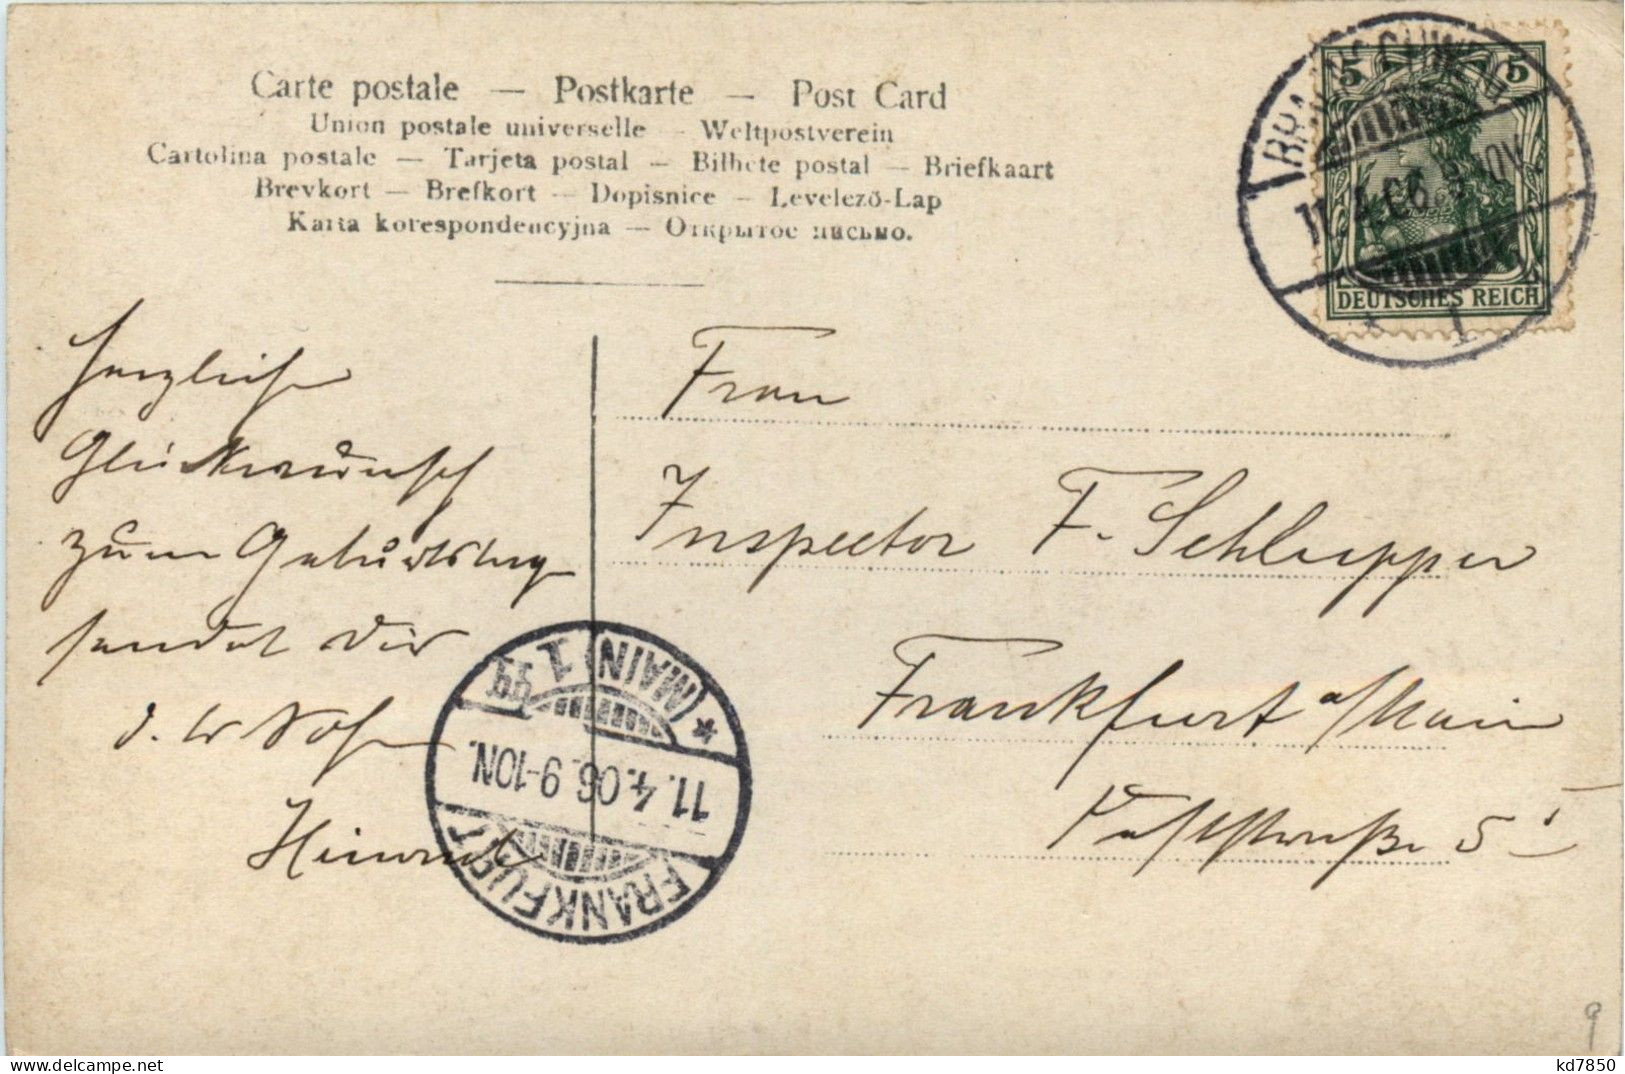 Carte postale — Postkarte — Post Card
Union postale universelle — Weltpostverein
Cartolina postale — Tarjeta postal — Bilhete postal — Briefkaart
Brevkort — Brefkort — Dopisnice — Levelező-Lap
Karta korespondencyjna — Открытое письмо.
5 5
DEUTSCHES REICH
BRAUNSCHWEIG
11.4.06.
1
Herzlichen
Glückwunsch
zum Geburtstag
sendet Dir
d. Sohn
Frau
Inspector F. Schlupper
Frankfurt a/Main
5 I
FRANKFURT (MAIN) 1
11.4.06. 9-10N.
9
kd7850